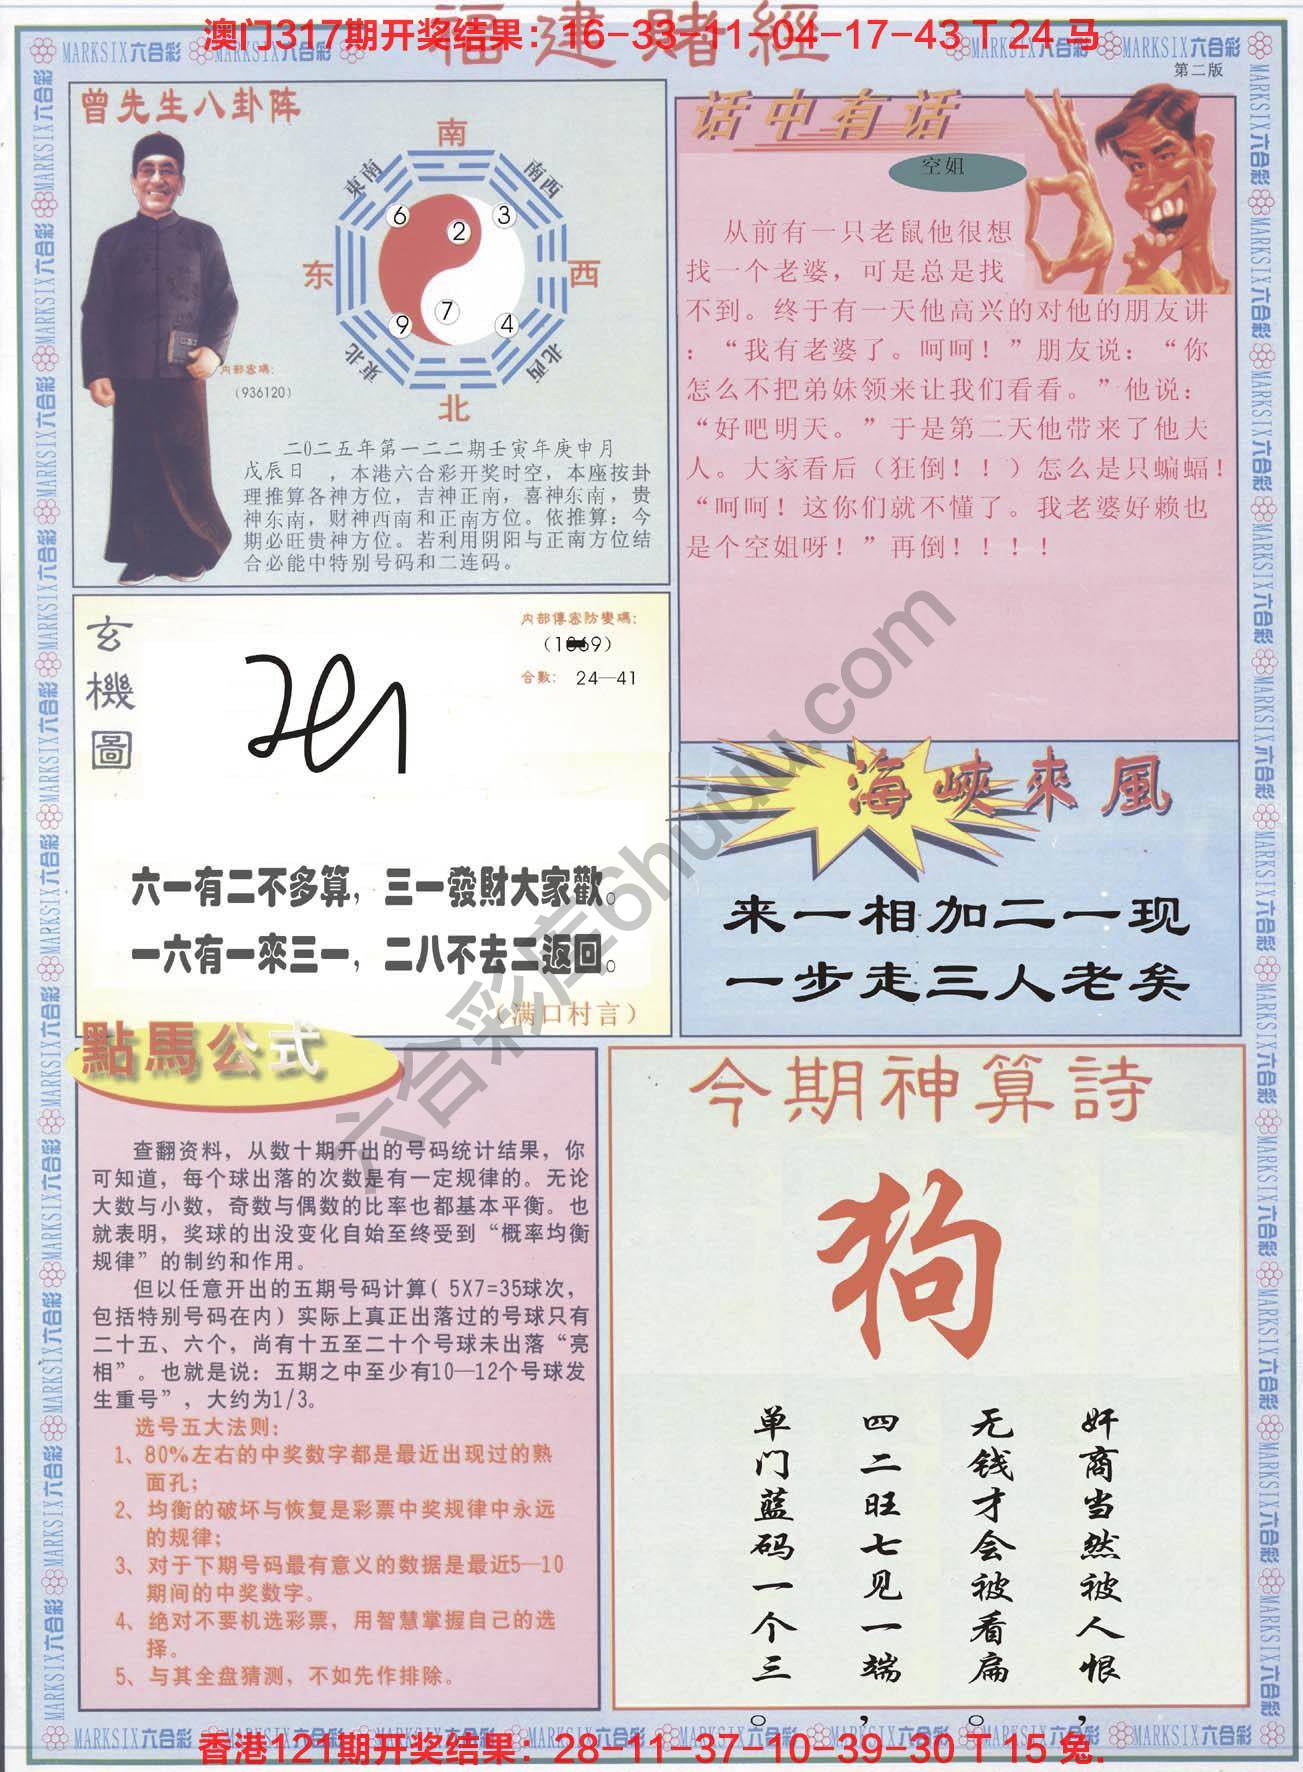 澳门317期开奖结果：16-33-11-04-17-43 T 24 马
福建賭經
MARKSIX六合彩
第二版
曾先生八卦阵
南
東南
南西
6
2
3
东
西
9
7
4
東北
北西
北
内部密碼：
（936120）
二0二五年第一二二期壬寅年庚申月
戊辰日 ，本港六合彩开奖时空，本座按卦
理推算各神方位，吉神正南，喜神东南，贵
神东南，财神西南和正南方位。依推算：今
期必旺贵神方位。若利用阴阳与正南方位结
合必能中特别号码和二连码。
话中有话
空姐
从前有一只老鼠他很想
找一个老婆，可是总是找
不到。终于有一天他高兴的对他的朋友讲
：“我有老婆了。呵呵！”朋友说：“你
怎么不把弟妹领来让我们看看。”他说：
“好吧明天。”于是第二天他带来了他夫
人。大家看后（狂倒！！）怎么是只蝙蝠！
“呵呵！这你们就不懂了。我老婆好赖也
是个空姐呀！”再倒！！！！
玄機圖
内部傳密防變碼：
合數： 24—41
六一有二不多算，三一發財大家歡。
一六有一來三一，二八不去二返回。
（满口村言）
海峽來風
来一相加二一现
一步走三人老矣
點馬公式
查翻资料，从数十期开出的号码统计结果，你
可知道，每个球出落的次数是有一定规律的。无论
大数与小数，奇数与偶数的比率也都基本平衡。也
就表明，奖球的出没变化自始至终受到“概率均衡
规律”的制约和作用。
但以任意开出的五期号码计算（5X7=35球次，
包括特别号码在内）实际上真正出落过的号球只有
二十五、六个，尚有十五至二十个号球未出落“亮
相”。也就是说：五期之中至少有10—12个号球发
生重号”，大约为1/3。
选号五大法则：
1、80%左右的中奖数字都是最近出现过的熟
面孔；
2、均衡的破坏与恢复是彩票中奖规律中永远
的规律；
3、对于下期号码最有意义的数据是最近5—10
期间的中奖数字。
4、绝对不要机选彩票，用智慧掌握自己的选
择。
5、与其全盘猜测，不如先作排除。
今期神算詩
狗
奸商当然被人恨，
无钱才会被看扁。
四二旺七见一端，
单门蓝码一个三。
六合彩库6huuu.com
香港121期开奖结果：28-11-37-10-39-30 T 15 兔.